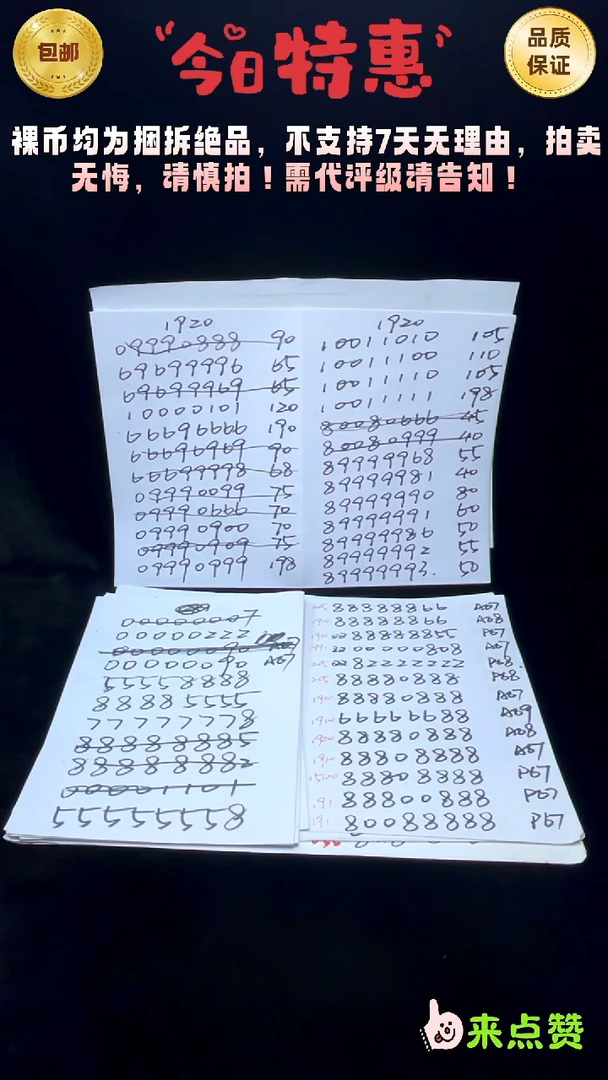 包邮
今日特惠
品质
保证
裸币均为捆拆绝品，不支持7天无理由，拍卖
无悔，请慎拍！需代评级请告知！
1920
09990888 90
69699996 65
69699969 65
10000101 120
66696666 190
66696969 90
66699998 68
09990099 75
09990666 70
09990900 70
09990909 75
09990999 198
1920
10011010 105
10011100 110
10011110 105
10011111 198
80080666 45
80080999 40
89999968 55
89999981 40
89999990 80
89999991 60
89999986 50
89999992 55
89999993. 50
00000007
00000222
00000090 A67
00000090 A67
55558888
88885555
77777778
88888885
88888882
00001101
55555558
88888866 A67
88888866 A68
00 88888855 P67
22 00000808 A67
00 82222222 P68.
88880888 P68
88880888 A67
66666688 A69
88880888 A68
88808888 A67
88808888 P67
191 88800888 P67
191 80088888 P67
来点赞